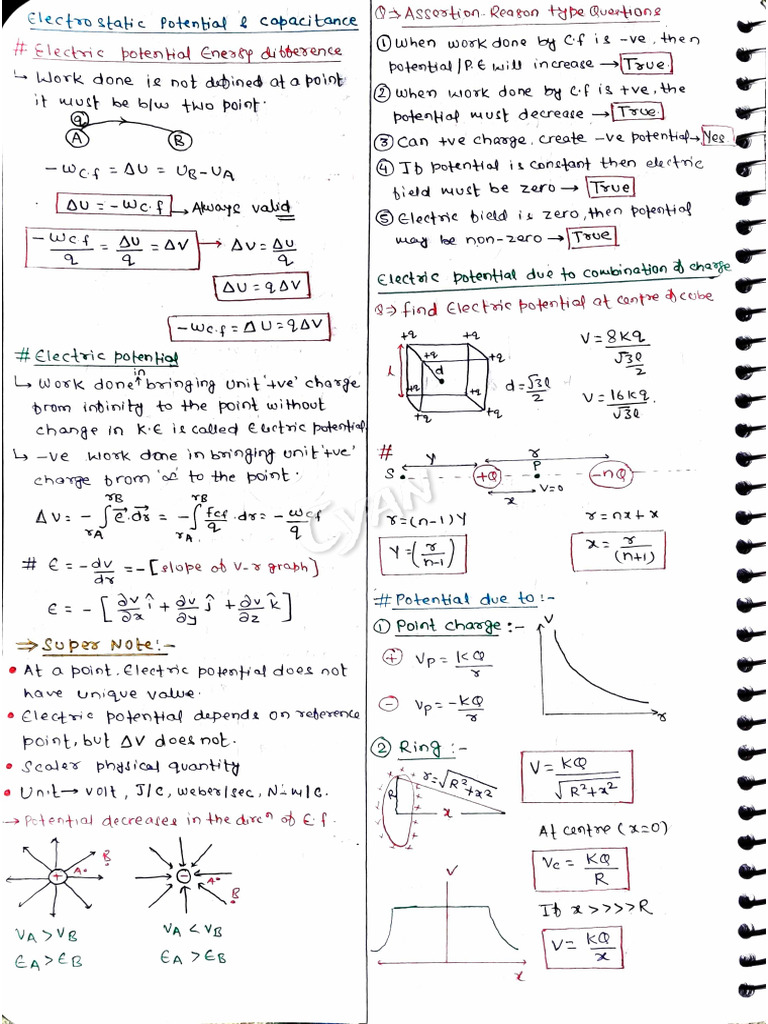 Electrostatic Potential & Capacitance
# Electric potential Energy difference
↳ Work done is not defined at a point
it must be b/w two point.
q
A B
-Wc.f = ΔU = UB-UA
ΔU = -Wc.f → Always valid
-Wc.f/q = ΔU/q = ΔV → ΔV = ΔU/q
ΔU = qΔV
-Wc.f = ΔU = qΔV
# Electric potential
↳ Work done in bringing unit '+ve' charge
from infinity to the point without
change in K.E is called Electric potential.
↳ -ve work done in bringing unit '+ve'
charge from '∞' to the point.
ΔV = -∫rA rB E⃗.dr⃗ = -∫rA rB fcf/q .dr = -Wcf/q
# E = -dv/dr = -[slope of V-r graph]
E = -[∂v/∂x î + ∂v/∂y ĵ + ∂v/∂z k̂]
⇒ Super Note:-
• At a point. Electric potential does not
have unique value.
• Electric potential depends on reference
point, but ΔV does not.
• Scaler physical quantity
• Unit → volt, J/C, weber/sec, N-m/C.
→ Potential decreases in the dircⁿ of E.f.
+ A B
- A B
VA > VB
VA < VB
EA > EB
EA > EB
Q ⇒ Assertion-Reason type Questions
① When work done by C.f is -ve, then
potential/P.E will increase → True.
② When work done by C.f is +ve, the
potential must decrease → True.
③ Can +ve charge, create -ve potential → Yes
④ If potential is constant then electric
field must be zero → True
⑤ Electric field is zero, then potential
may be non-zero → True
Electric potential due to combination of charge
Q ⇒ find Electric potential at centre of cube
+q +q
+q +q
l d
+q +q
+q +q
d = √3l/2
V = 8Kq/(√3l/2)
V = 16Kq/√3l.
#
y r
S +Q P -nQ
x V=0
r = (n-1)y
r = nx + x
y = (r/n-1)
x = r/(n+1)
# Potential due to:-
① Point charge:-
V
r
+ Vp = KQ/r
- Vp = -KQ/r
② Ring:-
R r = √R²+x²
x
V = KQ/√R²+x²
At centre (x=0)
Vc = KQ/R
If x>>>>R
V = KQ/x
V
x
CYAN